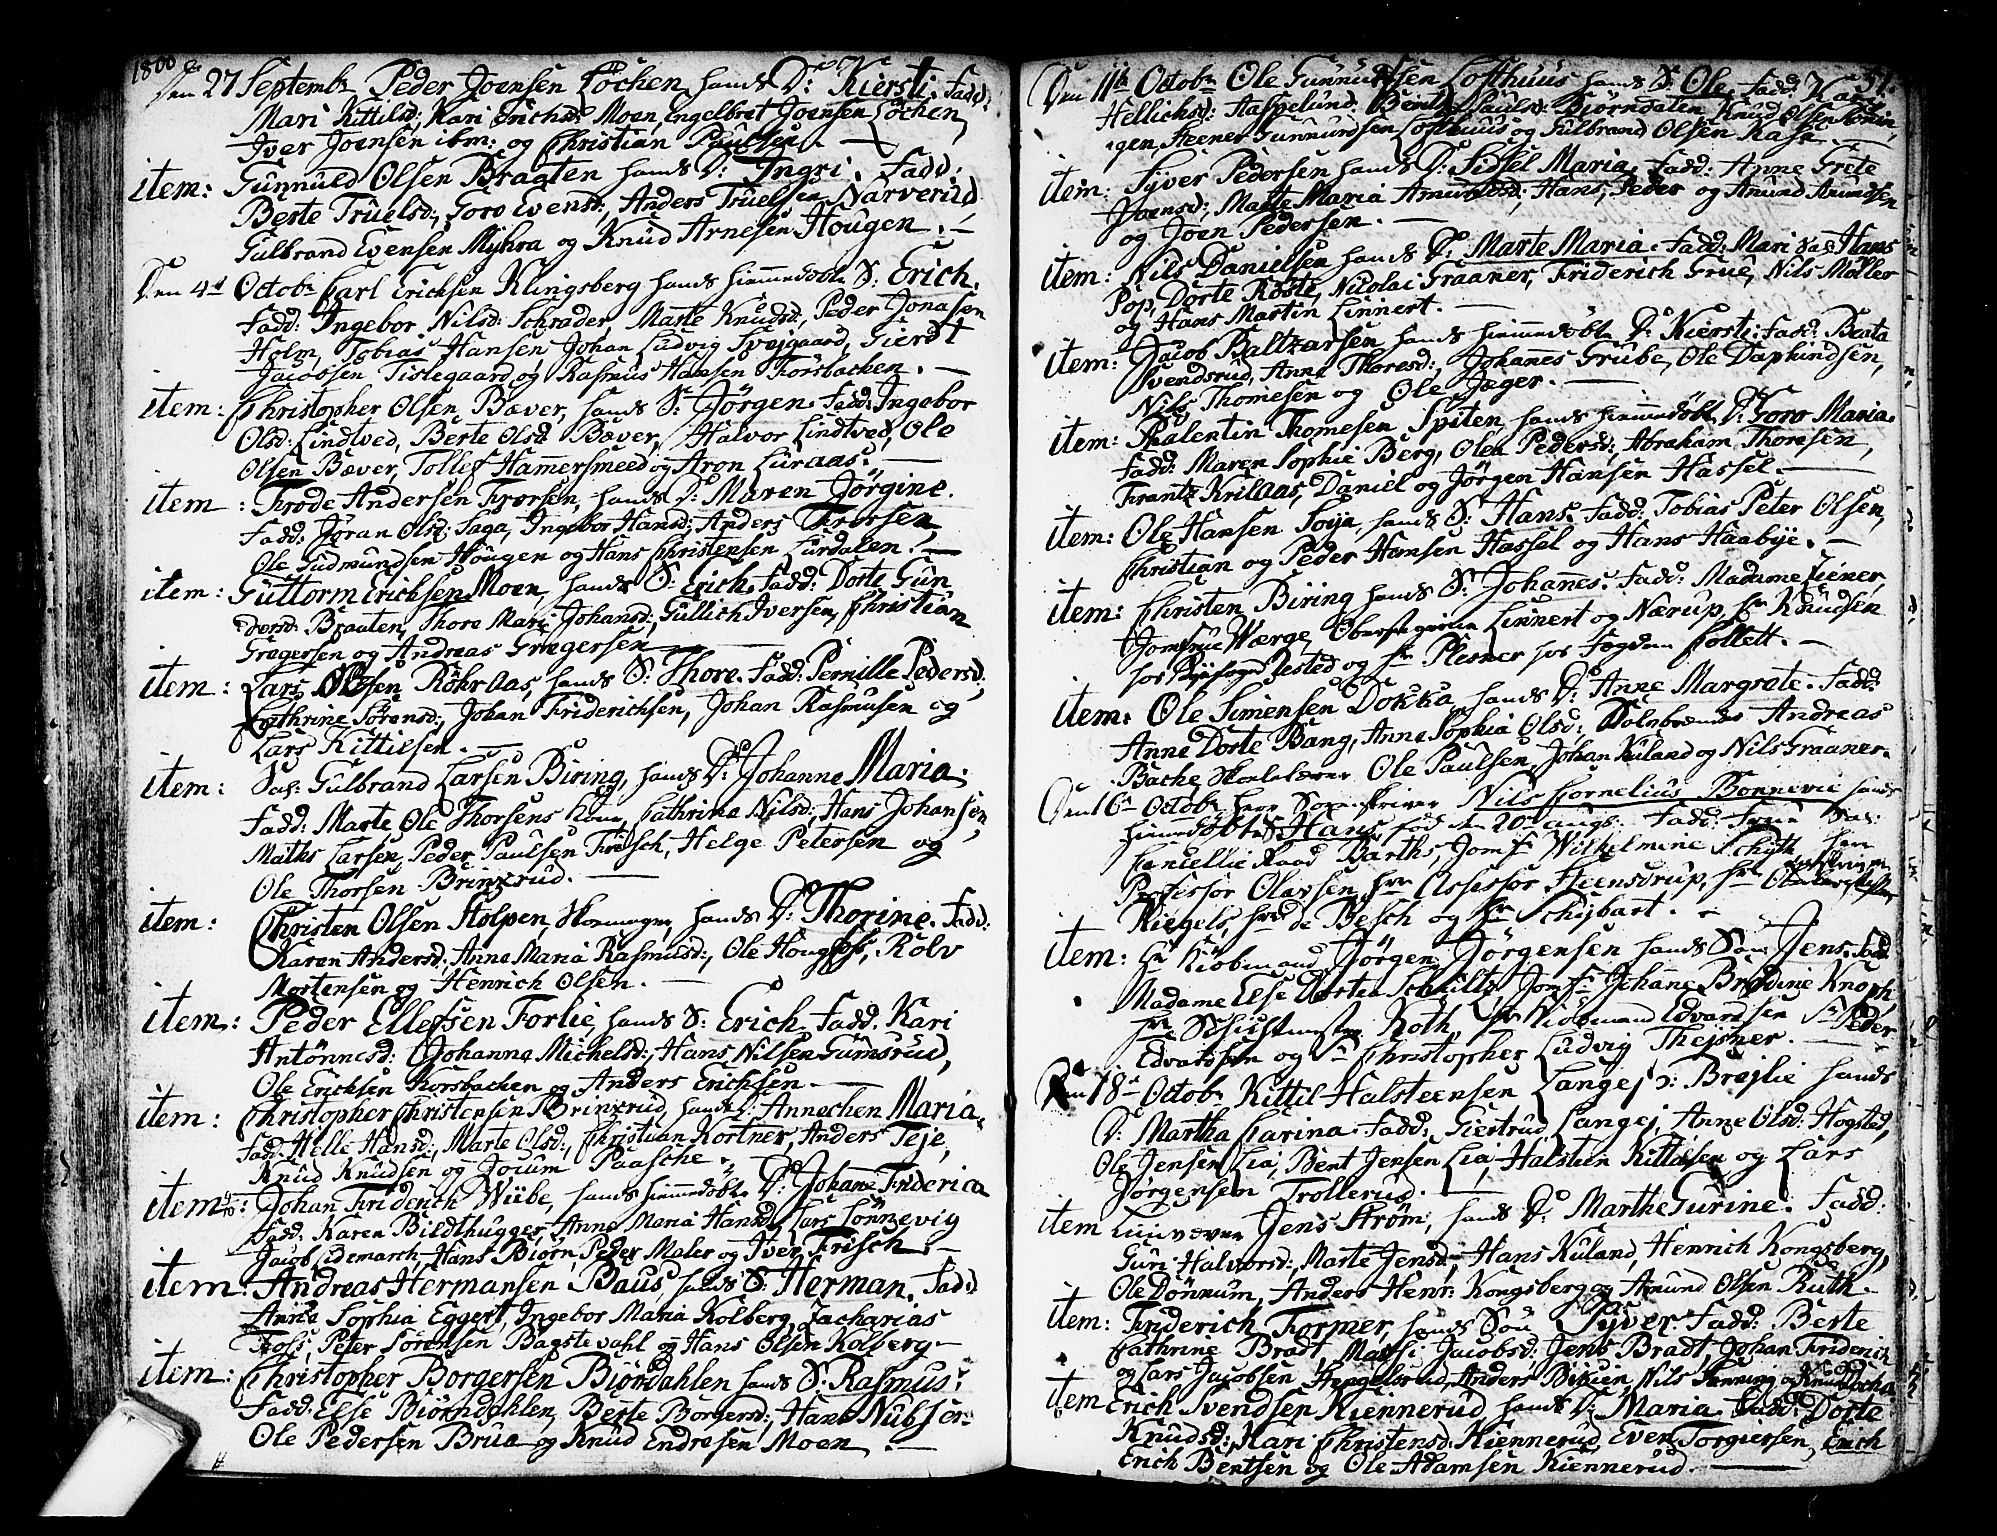 1800
Den 27 Septembr Peder Joensen Løchen hands D: Kiersti. Fadd:
Mari Kittilsd:, Kari Erichsd: Moen, Engelbret Joensen Løchen,
Iver Joensen ibm: og Christian Paulsen. —
item: Gunnuld Olsen Bragten hands D: Ingri. Fadd:
Berte Truelsd:, Goro Evensd:, Anders Truelsen Narverud
Gulbrand Evensen Myhra og Knud Arnesen Hougen. —
Den 4de Octobr Carl Erichsen Klingsberg hands hiemmedøbte S: Erich.
Fadd: Ingebor Nilsd: Schrader, Marte Knudsd, Peder Jonasen
Holm, Tobias Hansen, Johan Ludvig Svejgaard, Gierdt
Jacobsen Tislegaard og Rasmus Hansen Korsbacken. —
item: Christopher Olsen Bæver, hands S: Jörgen. Fadd: Ingebor
Olsd: Lindtved, Berte Olsd Bæver, Halvor Lindtved, Ole
Olsen Bæver, Tollef Hammersmeed og Aron Luraas. —
item: Frode Andersen Frorsen, hands D: Maren Jörgine.
Fadd: Jöran Olsd: Saga, Ingebor Hansd:, Anders Frorsen,
Ole Gudmundsen Hougen og Hans Christensen Lurdalen. —
item: Guttorm Erichsen Moen, hands S: Erich. Fadd: Dorte Gun
dersd: Braaten, Thore Mari Johansd:, Gullich Iversen, Christian
Gregersen og Andreas Gregersen —
item: Lars Olsen Röhraas, hands S: Thore. Fadd: Pernille Pedersd:,
Cathrine Sörensd:, Johan Friderichsen, Johan Rasmusen og
Lars Kittilsen. —
item: Sal: Gulbrand Larsen Biring, hands D: Johanne Maria.
Fadd: Marte Ole Thorsens Kone, Cathrine Nilsd: Hans Johansen,
Maths Larsen, Peder Paulsen Friisch, Helge Petersen og
Ole Thorsen Brinzrud. —
item: Christen Olsen Stolpen, Skomager, hands D: Thorine. Fadd:
Karen Andersd:, Anne Maria Rasmusd:, Ole Hougs, Rolv
Mortensen og Henrich Olsen. —
item: Peder Ellefsen Forlie, hands S: Erich. Fadd. Kari
Antönnesd: Johanna Michelsd:, Hans Nilsen Gumsrud,
Ole Erichsen Korsbacken og Anders Erichsen. —
item: Christopher Christensen Brinzrud, hands D: Annechen Maria.
Fadd: Helle Hansd:, Marte Olsd:, Christian Kortner, Anders Teje,
Knud Knudsen og Jocum Paasche. —
item: Johan Friderich Wübe, hands hiemmedöbte D: Johanne Friderica
Fadd: Karen Bildthugger, Anne Maria Hansd, Lars Lönnevig
Jacob Lidemarch, Hans Biörn, Peder Maler og Iver Frisch. —
item: Andreas Hermansen Baus, hands S: Herman. Fadd:
Anne Sophia Eggert, Ingebor Maria Kolberg, Zacharias
Foss, Peter Sörensen Bagstevahl og Hans Olsen Kolberg —
item: Christopher Borgersen Biördahlen hands S: Rasmus.
Fadd: Else Biörndahlen, Berte Borgersd:, Hans Nubser.
Ole Pedersen Brua og Knud Endresen Moen. —
51.
Den 11te Octobr Ole Gunnulfsen Lofthuus hands S: Ole. Fadd:
Hellichsd: Haspelund. Bent Paulsd: Biörndalen, Knud Olsen
gen, Steener Gunnundsen Lofthuus og Gulbrand Olsen Kasse. —
item: Syver Pedersen hands D: Sidsel Maria. Fadd: Anne Grete
Joensd:, Marte Maria Amundsd:, Hans, Peder og Amund Amundsen
og Joen Pedersen. —
item: Nils Danielsen hands D: Marte Maria. Fadd: Mari Sal: Hans
Pop, Dorte Röste, Nicolai Graaner, Friderich Grue, Nils Möller
og Hans Martin Linnert. —
item: Jacob Baltzarsen hands hiemmedöbte D: Kiersti. Fadd: Beata
Svendsrud, Anne Thoresd:, Johanes Grube, Ole Daplundsen,
Nils Thomesen og Ole Jæger. —
item: Valentin Thomesen Spiten, hands hiemmedöbte D: Goro Maria.
Fadd: Maren Sophie Berg, Olea Pedersd:, Abraham Thoresen,
Frantz Krilaas, Daniel og Jörgen Hansen Hassel. —
item: Ole Hansen Soya, hands S: Hans. Fadd: Tobias Peter Olsen,
Christian og Peder Hansen Hassel og Hans Haabye. —
item: Christen Biring hands S: Johannes. Fadd: Madame Ziener,
Jomfrue Wærge, Linnert og Nærup, Hr Knudsen
hos Byefoged Usted og Hr Plesner hos Fogden Collett. —
item: Ole Simensen Dokka, hands D: Anne Margrete. Fadd:
Anne Dorte Bang, Anne Sophia Olsd: Andreas
Bache Skolelærer Ole Paulsen, Johan Kuland og Nils Graaner.
Den 16de Octobr herr Sorenskriver Nils Cornelius Bonnevie hands
hiemmedöbte S: Hans, fød den 20de augs. Fadd: Frue Sal:
Cancellie Raad Barths, Jomfr Wilhelmine Schytt, herr
Professor Olavsen, Hrr Assessor Steensdrup, Hr
Kiegels, Hrr de Besch og Hr Schybart. —
item: Hr Kiöbmand Jörgen Jörgensen hands Sön Jens. Fad
Madame Else Dortea Schultz, Jomfr Johanne Brodine Knoph,
Hr Schichtmester Roth, Hr Kiöbmand Edvardsen Sr Peder
Edvardsen og Sr Christopher Ludvig Thejsner. —
Den 18de Octobr Kittil Halsteensen Langej v: Brejlie hands
D: Martha Carina. Fadd: Giertrud Langej, Anne Olsd: Hogsted,
Ole Jensen Lia, Bent Jensen Lia, Halstein Kittilsen og Lars
Jörgensen Trollerud. —
item Linvæver Jens Ström, hands D: Marthe Gurine. Fadd:
Guri Halvorsd:, Marte Jensd:, Hans Kuland, Henrich Kongsberg,
Ole Dönnum, Anders Henr: Kongsberg og Amund Olsen Ruth. —
item: Friderich Formер, hands Sön Syver. Fadd: Berte
Cathrine Bradt, Mari Jacobsd:, Jens Bradt, Johan Friderich
og Lars Jacobsen Hengelsrud, Anders Bijuien, Nils Tanning og Knud Docha
item Erich Svendsen Kiennerud hands D: Maria. Fadd: Dorte
Knudsd:, Mari Christensd: Kiennerud, Even Torgiersen, Erich
Erich Bentsen og Ole Adamsen Kiennerud. —